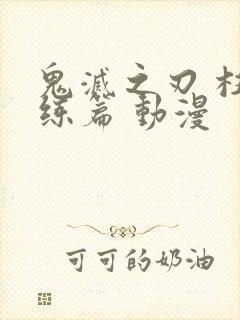 鬼滅之刃 柱
练篇 動漫
可可的奶油